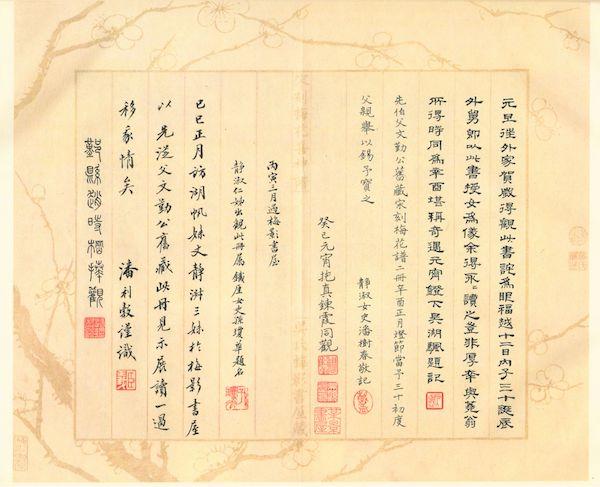 元旦往外家賀歲得觀此書詫為眼福越十二日內子三十誕辰
外舅即以此書授女為儀余得永〻讀之豈非厚幸與蕘翁
所得時同為辛酉堪稱奇遇元宵鐙下吳湖颿題記
先伯父文勤公舊藏宋刻梅花譜二冊辛酉正月燈節當予三十初度
父親舉以錫予寶之
靜淑女史潘樹春敬記
癸巳元宵抱真鍊霞同觀
丙寅三月過梅影書屋
靜淑仁姊出觀此冊屬鐵崖女史孫瓊華題名
己巳正月訪湖帆妹丈靜淑三妹於梅影書屋
以 先從父文勤公舊藏此冊見示展讀一過
移我情矣 潘利穀謹識
鄞縣趙時棡捧觀